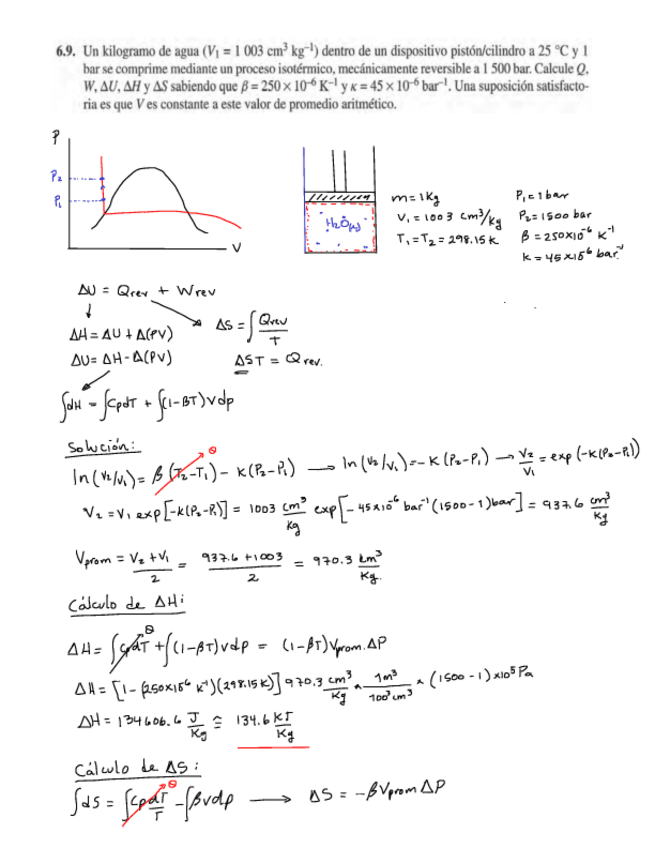 6.9. Un kilogramo de agua (V₁ = 1 003 cm³ kg⁻¹) dentro de un dispositivo pistón/cilindro a 25 °C y 1
bar se comprime mediante un proceso isotérmico, mecánicamente reversible a 1 500 bar. Calcule Q,
W, ΔU, ΔH y ΔS sabiendo que β = 250 × 10⁻⁶ K⁻¹ y κ = 45 × 10⁻⁶ bar⁻¹. Una suposición satisfacto-
ria es que V es constante a este valor de promedio aritmético.
P
P₂
P₁
V
H₂O(l)
m = 1 Kg
V₁ = 1003 cm³/Kg
T₁ = T₂ = 298.15 K
P₁ = 1 bar
P₂ = 1500 bar
β = 250x10⁻⁶ K⁻¹
k = 45x10⁻⁶ bar⁻¹
ΔU = Qrev + Wrev
ΔH = ΔU + Δ(PV)
ΔU = ΔH - Δ(PV)
ΔS = ∫ Qrev / T
ΔS T = Qrev.
∫dH = ∫CpdT + ∫(1-βT)Vdp
Solución:
ln(V₂/V₁) = β(T₂-T₁) - K(P₂-P₁) → ln(V₂/V₁) = -K(P₂-P₁) → V₂/V₁ = exp(-K(P₂-P₁))
0
V₂ = V₁ exp[-K(P₂-P₁)] = 1003 cm³/Kg exp[-45x10⁻⁶ bar⁻¹ (1500-1)bar] = 937.6 cm³/Kg
Vprom = V₂ + V₁ / 2 = 937.6 + 1003 / 2 = 970.3 cm³/Kg.
Cálculo de ΔH:
ΔH = ∫CpdT + ∫(1-βT)Vdp = (1-βT)Vprom. ΔP
0
ΔH = [1 - (250x10⁻⁶ K⁻¹)(298.15K)] 970.3 cm³/Kg x 1m³/100³cm³ x (1500-1)x10⁵ Pa
ΔH = 134606.6 J/Kg ≅ 134.6 KJ/Kg
Cálculo de ΔS:
∫dS = ∫Cp dT/T - ∫βVdp → ΔS = -βVprom ΔP
0